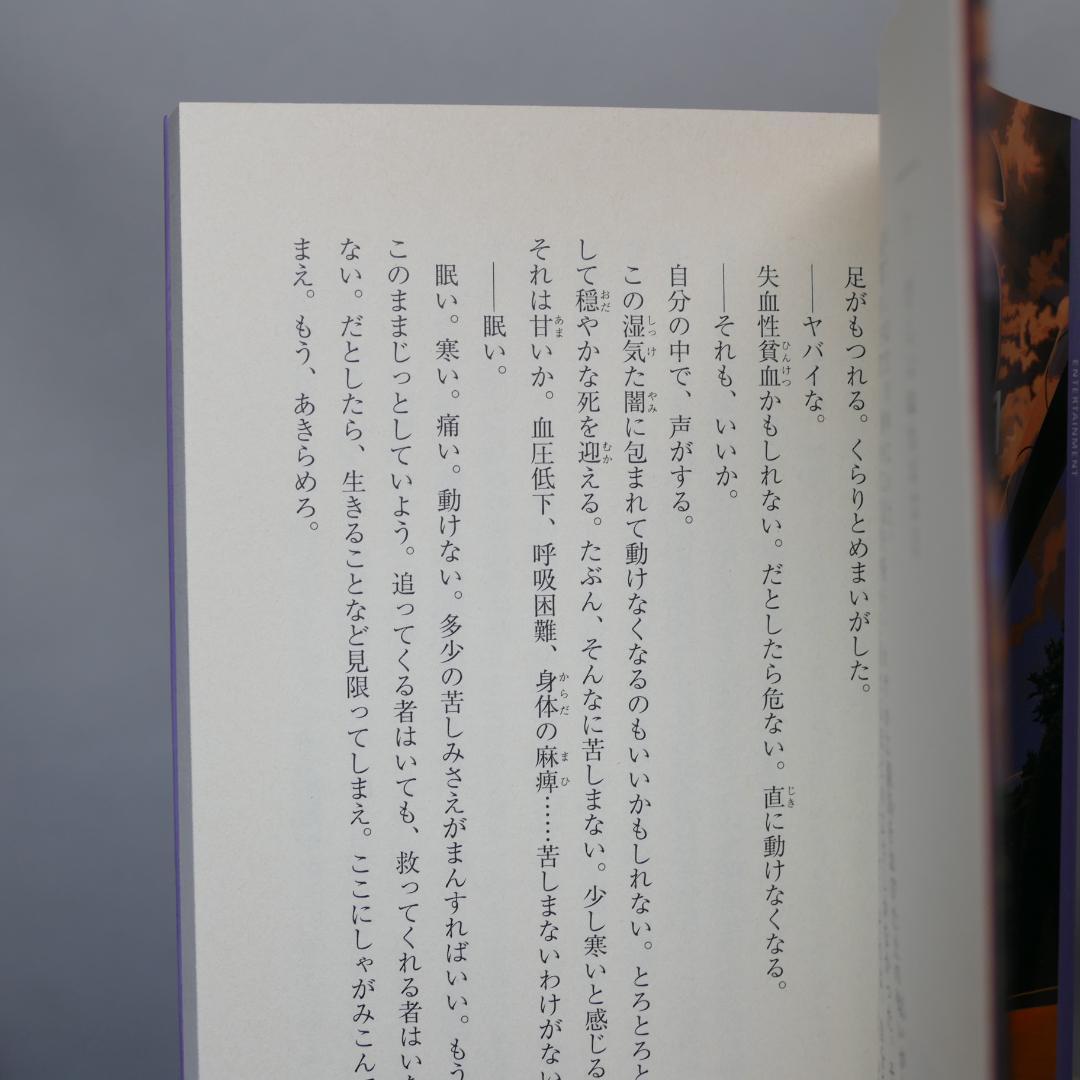 足がもつれる。くらりとめまいがした。
――ヤバイな。
失血性貧血かもしれない。だとしたら危ない。直に動けなくなる。
――それも、いいか。
自分の中で、声がする。
この湿気た闇に包まれて動けなくなるのもいいかもしれない。とろとろと
して穏やかな死を迎える。たぶん、そんなに苦しまない。少し寒いと感じる
それは甘いか。血圧低下、呼吸困難、身体の麻痺……苦しまないわけがない
――眠い。
眠い。寒い。痛い。動けない。多少の苦しみさえがまんすればいい。もう
このままじっとしていよう。追ってくる者はいても、救ってくれる者はい
ない。だとしたら、生きることなど見限ってしまえ。ここにしゃがみこんで
まえ。もう、あきらめろ。
ENTERTAINMENT